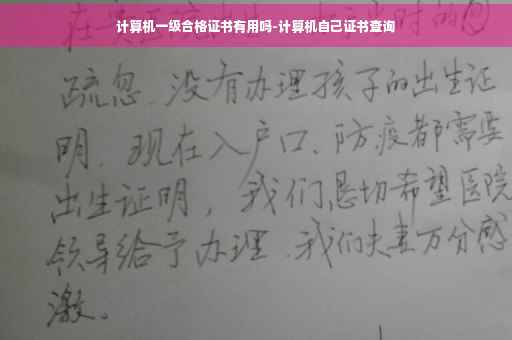 计算机一级合格证书有用吗-计算机自己证书查询
疏忽.没有办理孩子的出生证
明.现在入户口、防疫都需要
出生证明，我们恳切希望医院
领导给予办理.我们夫妻万分感
激。